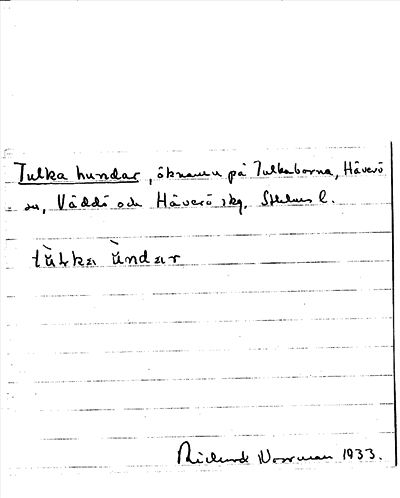 Tulka hundar, öknamn på Tulkaborna, Häverö
sn, Väddö och Häverö skg, Sthlms l.
tùlka ùndar
Richard Norrman 1933.